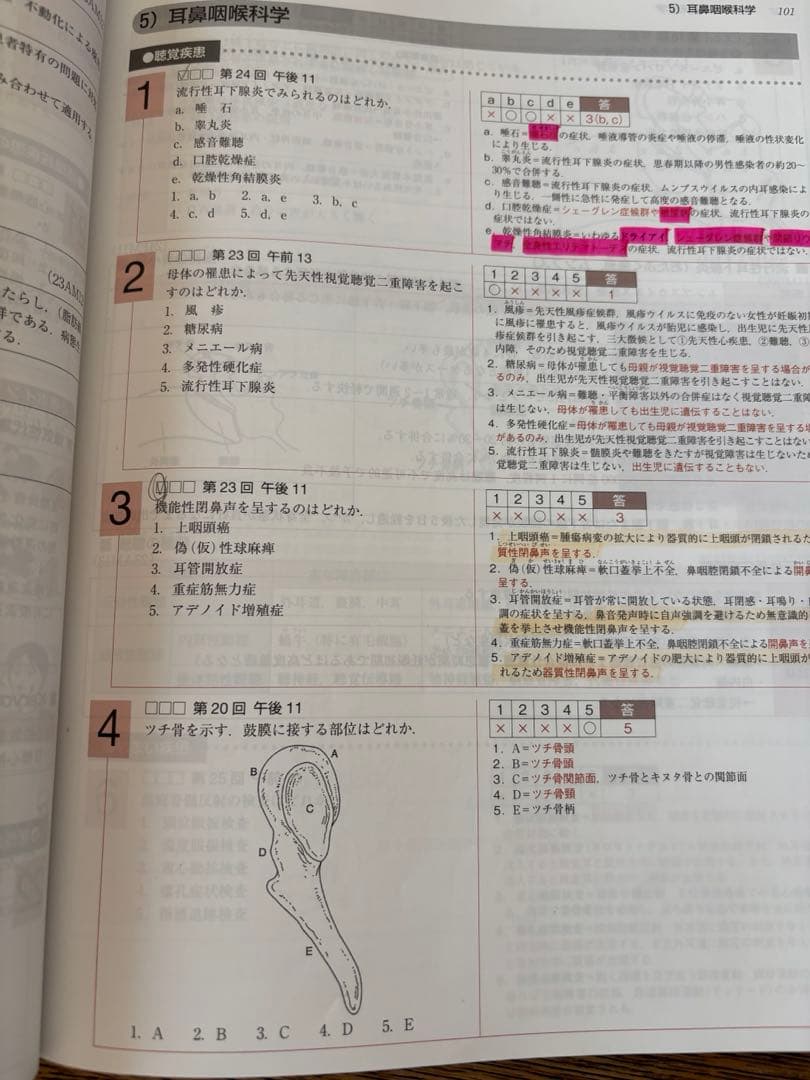 5）耳鼻咽喉科学 101
5）耳鼻咽喉科学
●聴覚疾患
1
☑□□ 第24回 午後11
流行性耳下腺炎でみられるのはどれか．
a. 唾 石
b. 睾丸炎
c. 感音難聴
d. 口腔乾燥症
e. 乾燥性角結膜炎
1. a, b 2. a, e 3. b, c
4. c, d 5. d, e
a b c d e 答
× ○ ○ × × 3(b, c)
a. 唾石＝
の症状，唾液導管の炎症や唾液の停滞，唾液の性状変化
により生じる．
b. 睾丸炎＝流行性耳下腺炎の症状，思春期以降の男性感染者の約20～
30％で合併する．
c. 感音難聴＝流行性耳下腺炎の症状，ムンプスウイルスの内耳感染によ
り生じる．一側性に急性に発症して高度の感音難聴となる．
d. 口腔乾燥症＝シェーグレン症候群や糖尿病の症状，流行性耳下腺炎の
症状ではない．
e. 乾燥性角結膜炎＝いわゆるドライアイ，シェーグレン症候群や関節リウ
マチ，全身性エリテマトーデスの症状，流行性耳下腺炎の症状ではない．
2
□□□ 第23回 午前13
母体の罹患によって先天性視覚聴覚二重障害を起こ
すのはどれか．
1. 風 疹
2. 糖尿病
3. メニエール病
4. 多発性硬化症
5. 流行性耳下腺炎
1 2 3 4 5 答
○ × × × × 1
1. 風疹＝先天性風疹症候群，風疹ウイルスに免疫のない女性が妊娠初期
に風疹に罹患すると，風疹ウイルスが胎児に感染し，出生児に先天性
疹症候群を引き起こす，三大徴候として①先天性心疾患，②難聴，③
内障，そのため視覚聴覚二重障害を生じる．
2. 糖尿病＝母体が罹患しても母親が視覚聴覚二重障害を呈する場合が
るのみ，出生児が先天性視覚聴覚二重障害を引き起こすことはない．
3. メニエール病＝難聴・平衡障害以外の合併症はなく視覚聴覚二重障
は生じない，母体が罹患しても出生児に遺伝することはない．
4. 多発性硬化症＝母体が罹患しても母親が視覚聴覚二重障害を呈する場
があるのみ，出生児が先天性視覚聴覚二重障害を引き起こすことはない
5. 流行性耳下腺炎＝髄膜炎や難聴をきたすが視覚障害は生じないため
覚聴覚二重障害は生じない，出生児に遺伝することもない．
3
☑□□ 第23回 午後11
機能性閉鼻声を呈するのはどれか．
1. 上咽頭癌
2. 偽（仮）性球麻痺
3. 耳管開放症
4. 重症筋無力症
5. アデノイド増殖症
1 2 3 4 5 答
× × ○ × × 3
1. 上咽頭癌＝腫瘍病変の拡大により器質的に上咽頭が閉鎖されるた
質性閉鼻声を呈する．
2. 偽（仮）性球麻痺＝軟口蓋挙上不全，鼻咽腔閉鎖不全による開鼻
呈する．
3. 耳管開放症＝耳管が常に開放している状態，耳閉感・耳鳴り・
調の症状を呈する，鼻音発声時に自声強調を避けるため無意識的
蓋を挙上させ機能性閉鼻声を呈する．
4. 重症筋無力症＝軟口蓋挙上不全，鼻咽腔閉鎖不全による開鼻声を
5. アデノイド増殖症＝アデノイドの肥大により器質的に上咽頭が
れるため器質性閉鼻声を呈する．
4
□□□ 第20回 午後11
ツチ骨を示す．鼓膜に接する部位はどれか．
A
B
C
D
E
1. A 2. B 3. C 4. D 5. E
1 2 3 4 5 答
× × × × ○ 5
1. A＝ツチ骨頭
2. B＝ツチ骨頭
3. C＝ツチ骨関節面，ツチ骨とキヌタ骨との関節面
4. D＝ツチ骨頸
5. E＝ツチ骨柄